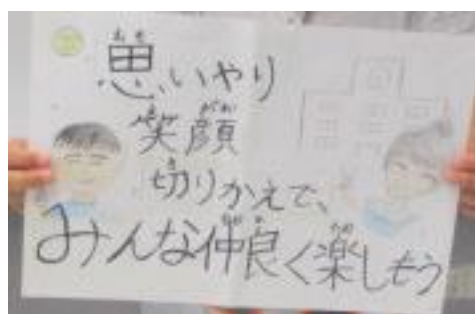 思いやり
笑顔
切りかえで、
みんな仲良く楽しもう